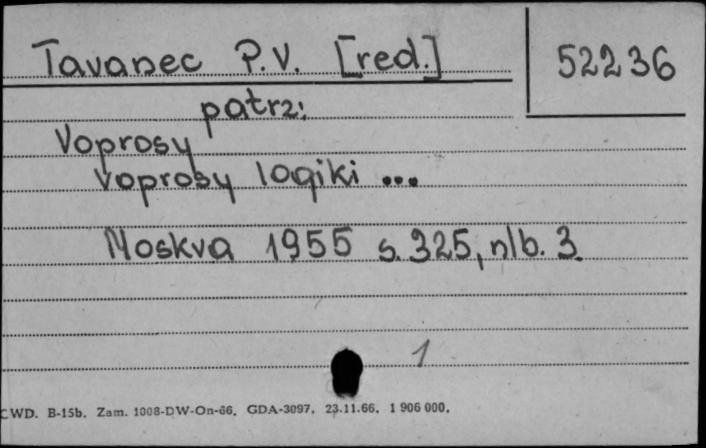 Tavanec P.V. [red.]
52236
patrz:
Voprosy
Voprosy logiki ...
Moskva 1955 s. 325, nlb. 3.
1
CWD. B-15b. Zam. 1008-DW-On-66. GDA-3097. 23.11.66. 1 906 000.